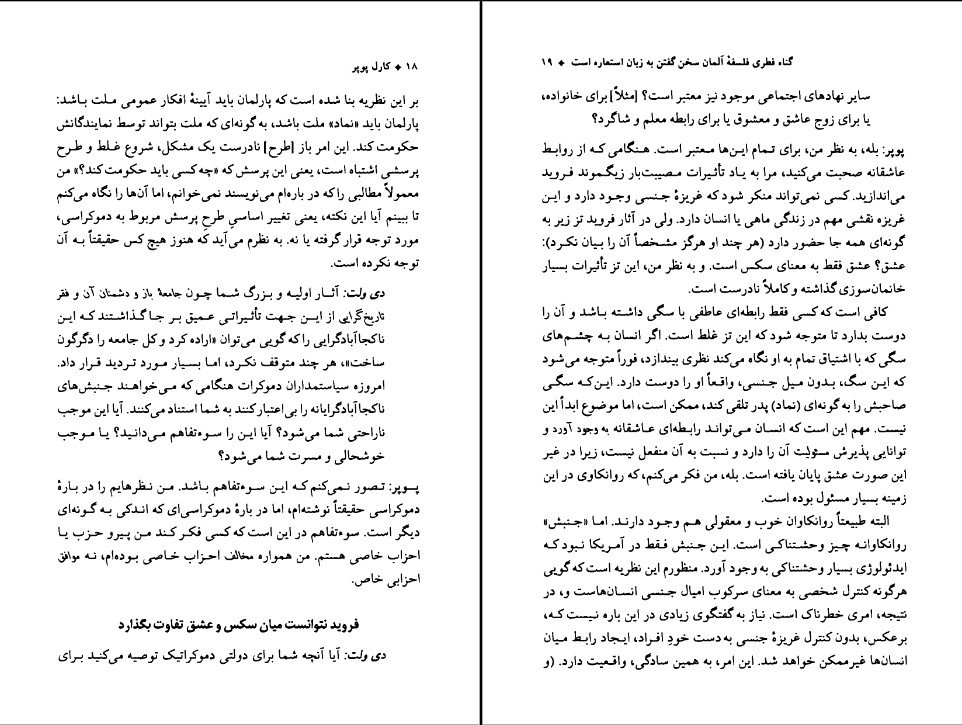 ۱۸ ❖ کارل پوپر
بر این نظریه بنا شده است که پارلمان باید آیینهٔ افکار عمومی ملت باشد:
پارلمان باید «نماد» ملت باشد، به گونه‌ای که ملت بتواند توسط نمایندگانش
حکومت کند. این امر باز [طرح] نادرست یک مشکل، شروع غلط و طرح
پرسشی اشتباه است، یعنی این پرسش که «چه کسی باید حکومت کند؟» من
معمولاً مطالبی را که در باره‌ام می‌نویسند نمی‌خوانم، اما آن‌ها را نگاه می‌کنم
تا ببینم آیا این نکته، یعنی تغییر اساسیِ طرحِ پرسش مربوط به دموکراسی،
مورد توجه قرار گرفته یا نه. به نظرم می‌آید که هنوز هیچ کس حقیقتاً به آن
توجه نکرده است.
دی ولت: آثار اولیه و بزرگ شما چون جامعهٔ باز و دشمنان آن و فقر
تاریخ‌گرایی از این جهت تأثیراتی عمیق بر جا گذاشتند که این
ناکجاآبادگرایی را که گویی می‌توان «اراده کرد و کل جامعه را دگرگون
ساخت»، هر چند متوقف نکرد، اما بسیار مورد تردید قرار داد.
امروزه سیاستمداران دموکرات هنگامی که می‌خواهند جنبش‌های
ناکجاآبادگرایانه را بی‌اعتبار کنند به شما استناد می‌کنند. آیا این موجب
ناراحتی شما می‌شود؟ آیا این را سوءتفاهم می‌دانید؟ یا موجب
خوشحالی و مسرت شما می‌شود؟
پوپر: تصور نمی‌کنم که این سوءتفاهم باشد. من نظرهایم را در بارهٔ
دموکراسی حقیقتاً نوشته‌ام، اما در بارهٔ دموکراسی‌ای که اندکی به گونه‌ای
دیگر است. سوءتفاهم در این است که کسی فکر کند من پیرو حزب یا
احزاب خاصی هستم. من همواره مخالف احزاب خاصی بوده‌ام، نه موافق
احزابی خاص.
فروید نتوانست میان سکس و عشق تفاوت بگذارد
دی ولت: آیا آنچه شما برای دولتی دموکراتیک توصیه می‌کنید برای
گناه فطری فلسفهٔ آلمان سخن گفتن به زبان استعاره است ❖ ۱۹
سایر نهادهای اجتماعی موجود نیز معتبر است؟ [مثلاً] برای خانواده،
یا برای زوج عاشق و معشوق یا برای رابطه معلم و شاگرد؟
پوپر: بله، به نظر من، برای تمام این‌ها معتبر است. هنگامی که از روابط
عاشقانه صحبت می‌کنید، مرا به یاد تأثیرات مصیبت‌بار زیگموند فروید
می‌اندازید. کسی نمی‌تواند منکر شود که غریزهٔ جنسی وجود دارد و این
غریزه نقشی مهم در زندگی ماهی یا انسان دارد. ولی در آثار فروید تز زیر به
گونه‌ای همه جا حضور دارد (هر چند او هرگز مشخصاً آن را بیان نکرد):
عشق؟ عشق فقط به معنای سکس است. و به نظر من، این تز تأثیرات بسیار
خانمان‌سوزی گذاشته و کاملاً نادرست است.
کافی است که کسی فقط رابطه‌ای عاطفی با سگی داشته باشد و آن را
دوست بدارد تا متوجه شود که این تز غلط است. اگر انسان به چشم‌های
سگی که با اشتیاق تمام به او نگاه می‌کند نظری بیندازد، فوراً متوجه می‌شود
که این سگ، بدون میل جنسی، واقعاً او را دوست دارد. این‌که سگی
صاحبش را به گونه‌ای (نماد) پدر تلقی کند، ممکن است، اما موضوع ابداً این
نیست. مهم این است که انسان می‌تواند رابطه‌ای عاشقانه به وجود آورد و
توانایی پذیرش مسئولیت آن را دارد و نسبت به آن منفعل نیست، زیرا در غیر
این صورت عشق پایان یافته است. بله، من فکر می‌کنم، که روانکاوی در این
زمینه بسیار مسئول بوده است.
البته طبیعتاً روانکاوان خوب و معقولی هم وجود دارند. اما «جنبش»
روانکاوانه چیز وحشتناکی است. این جنبش فقط در آمریکا نبود که
ایدئولوژی بسیار وحشتناکی به وجود آورد. منظورم این نظریه است که گویی
هرگونه کنترل شخصی به معنای سرکوب امیال جنسی انسان‌هاست و، در
نتیجه، امری خطرناک است. نیاز به گفتگوی زیادی در این باره نیست که،
برعکس، بدون کنترل غریزهٔ جنسی به دست خودِ افراد، ایجاد رابط میان
انسان‌ها غیرممکن خواهد شد. این امر، به همین سادگی، واقعیت دارد. (و